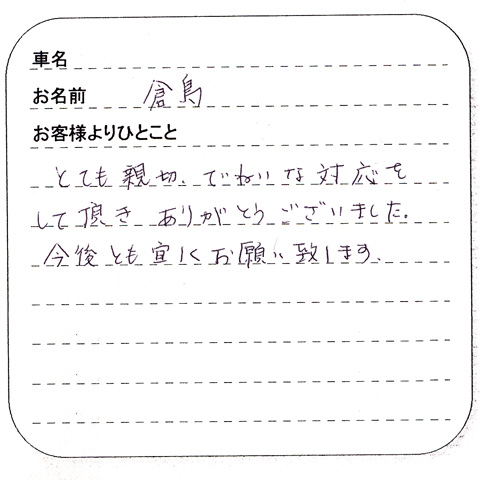 車名
お名前 倉島
お客様よりひとこと
とても親切、ていねいな対応を
して頂きありがとうございました。
今後とも宜しくお願い致します。